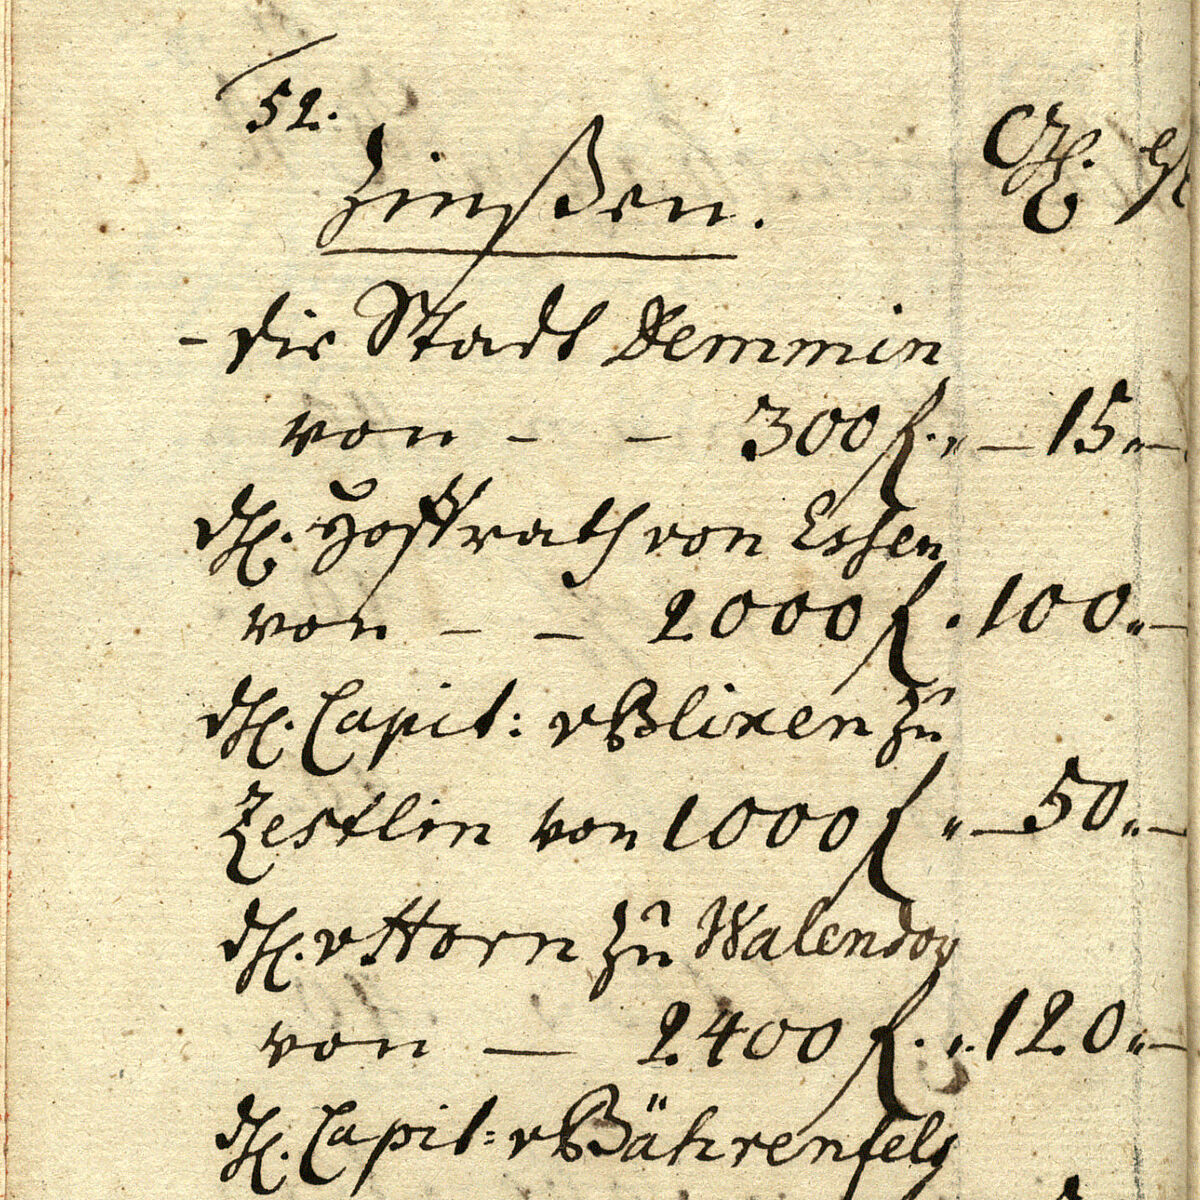 52.
Zinßen.
- die Stadt Demmin
von - - 300 f. „ — 15 „ —
dH. Hoffrath von Essen
von - - 2000 f. 100 „ —
dH. Capit: v Blixen zu
Zestlin von 1000 f „ — 50 „ —
dH. v Horn zu Walendow
von — 2400 f. „ 120 „ —
dH. Capit: v Bährenfels